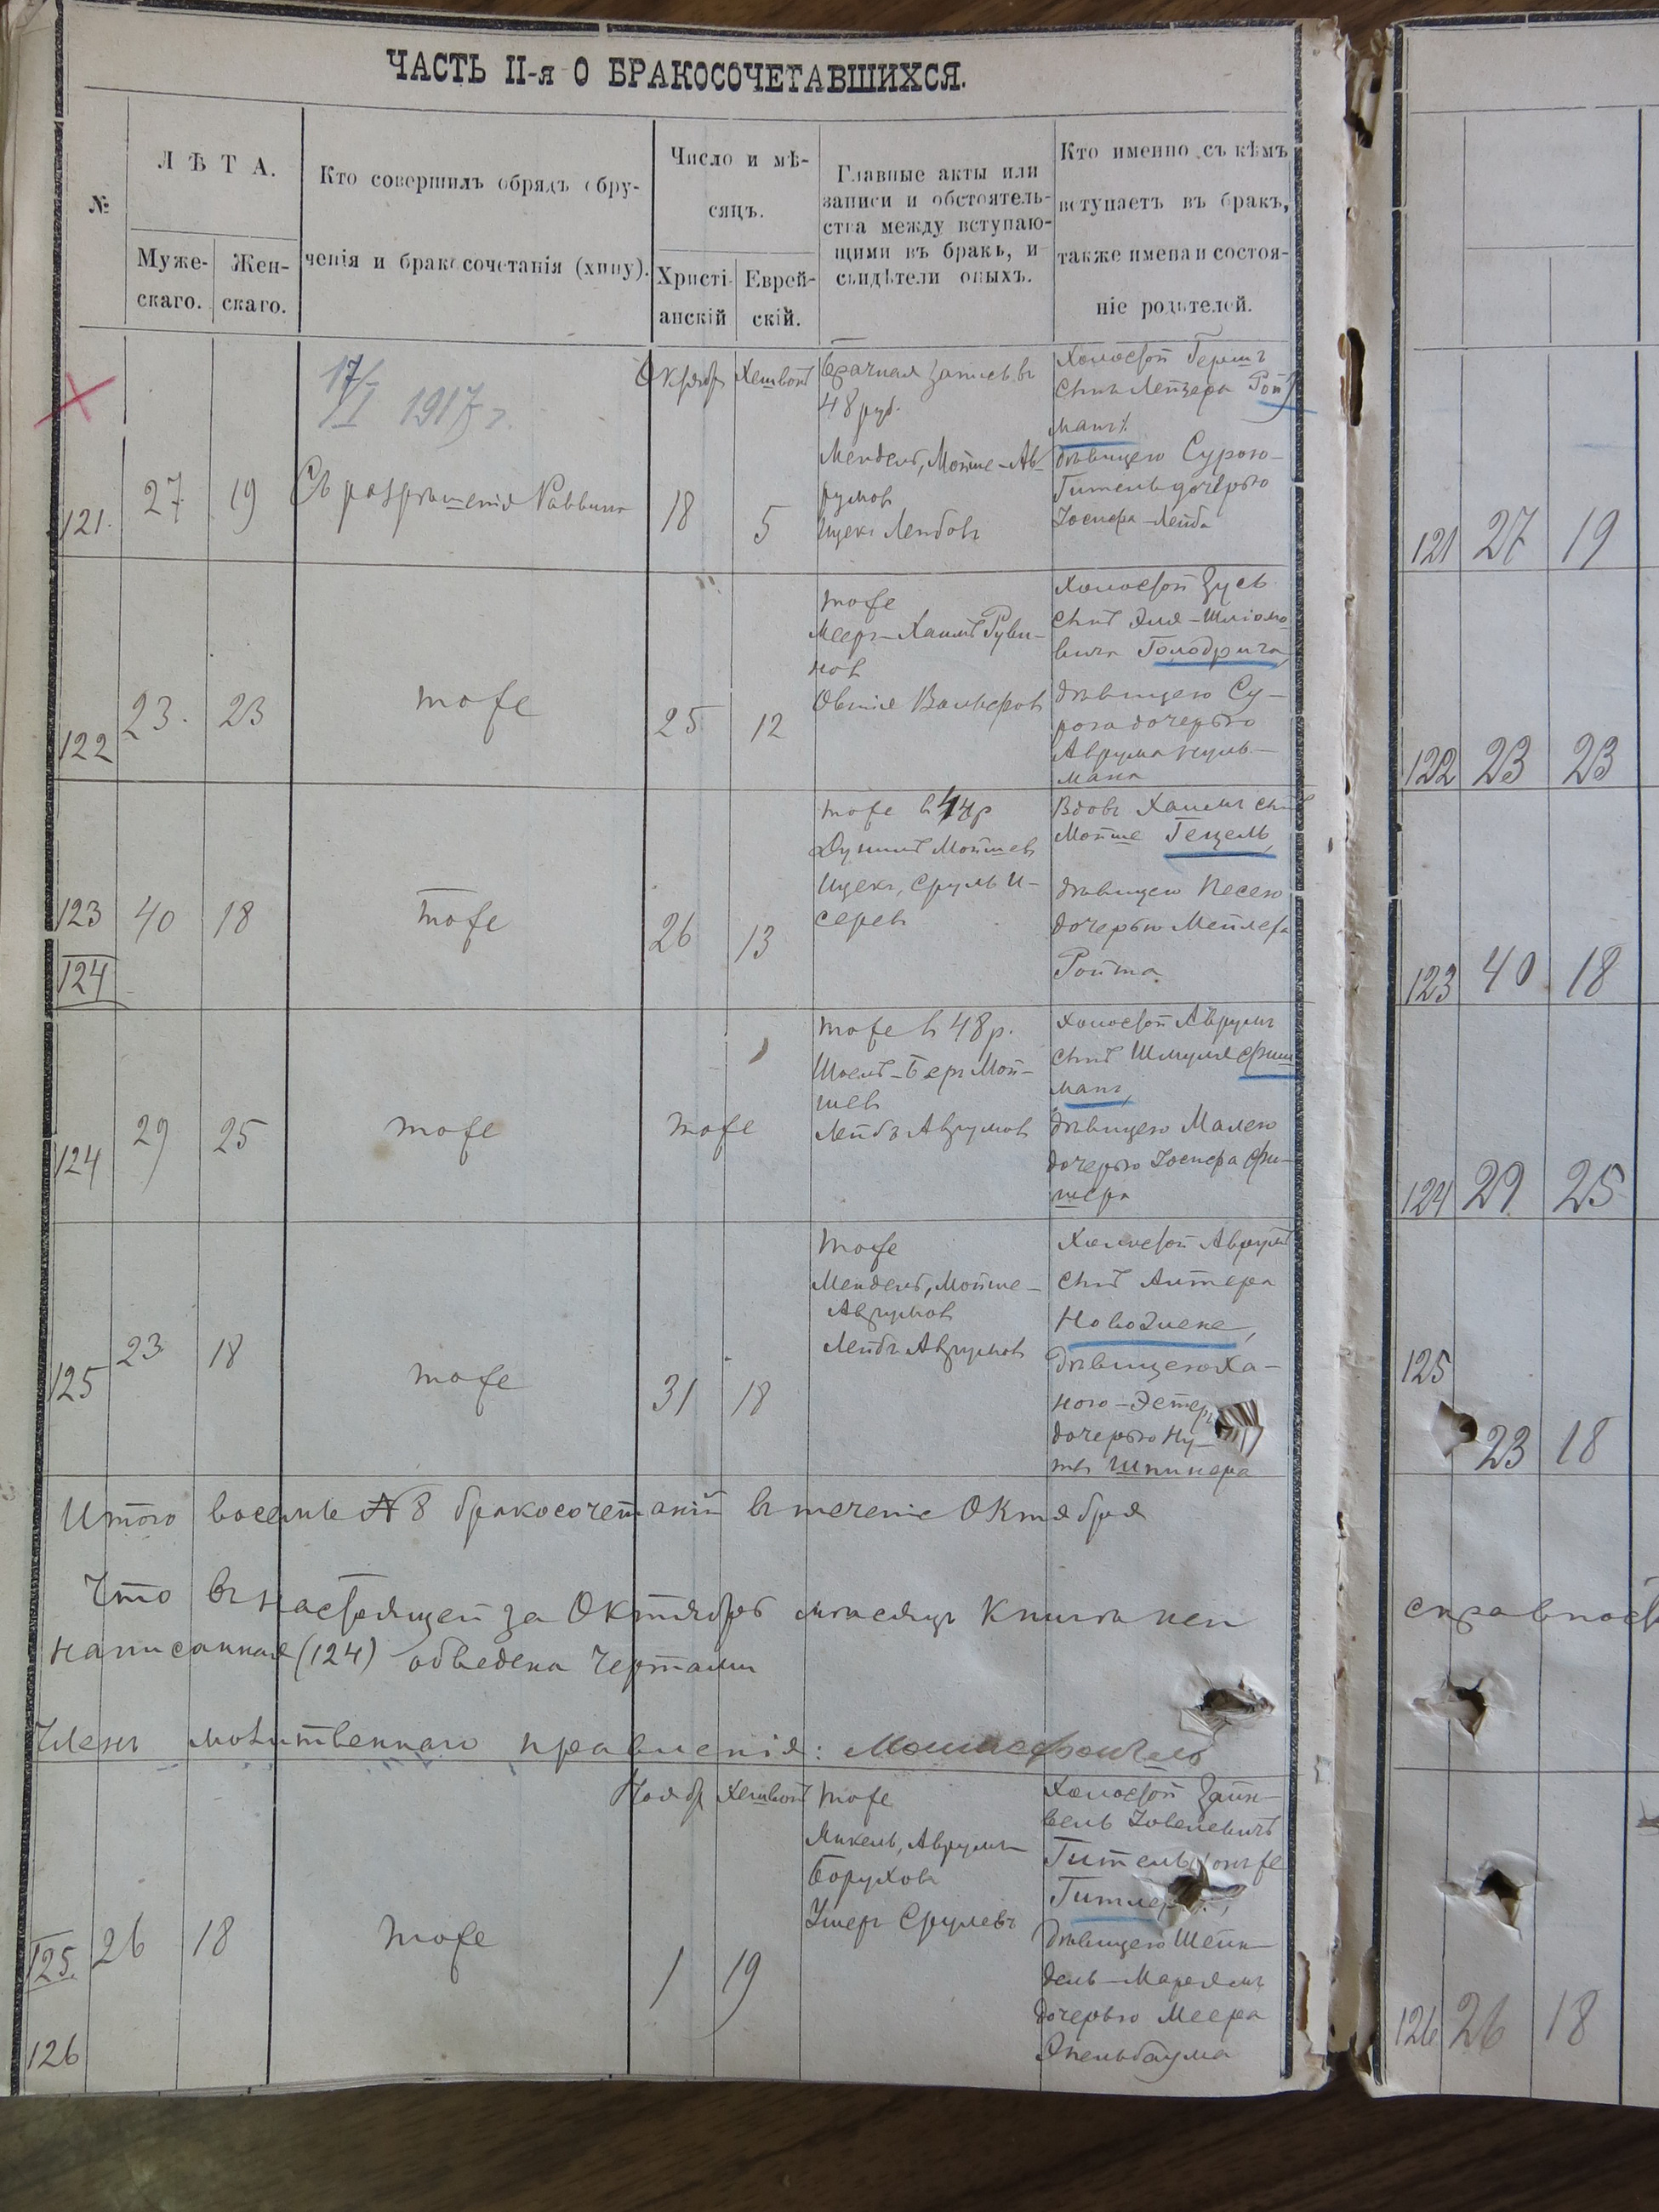 ЧАСТЬ II-я О БРАКОСОЧЕТАВШИХСЯ.
№
ЛѢТА.
Муже-
скаго.
Жен-
скаго.
Кто совершилъ обрядъ обру-
ченія и бракосочетанія (хипу).
Число и мѣ-
сяцъ.
Христі-
анскій
Еврей-
скій.
Главные акты или
записи и обстоятель-
ства между вступаю-
щими въ бракъ, и
свидѣтели оныхъ.
Кто именно съ кѣмъ
вступаетъ въ бракъ,
также имена и состоя-
ніе родителей.
121.
27
19
17/I 1917 г.
Съ разрѣшенія Раввина
Октябр
18
Хешвонъ
5
Брачная запись въ
48 руб.
Мендель, Мойше-Ав-
румов
Ицекъ Лейбовъ
Холостой Гершъ
сынъ Лейзера Ройт
манъ
дѣвицею Сурою-
Гитель дочерью
Іосифа-Лейба
122
23.
23
тоже
25
12
тоже
Мееръ-Хаимъ Руви-
нов
Овшія Волькеров
Холостой Зусь
сынъ Эля-Шліомо-
вича Голодрига,
дѣвицею Су-
рога дочерью
Аврума Куль-
мана
123
124
40
18
тоже
26
13
тоже в 44р
Душитъ Мойшев
Ицекъ, Сруль И-
серев
Вдовъ Хаимъ сынъ
Мойше Гецель,
дѣвицею Песею
дочерью Мейлеха
Ройта
124
29
25
тоже
тоже
тоже в 48р.
Шоелъ-Беръ Мой-
шев
Лейбъ Аврумов
Холостой Аврумъ
сынъ Шмуля Фиш
манъ,
дѣвицею Малею
дочерью Іосифа Фи-
шера
125
23
18
тоже
31
18
тоже
Мендель, Мойше-
Аврумов
Лейбъ Аврумов
Холостой Аврумъ
сынъ Антера
дѣвицею Ха-
ного-Эстеръ
дочерью Ну-
тъ Шпинера
Итого восемь № 8 бракосочетаній въ теченіе Октября
Что въ настоящей за Октябрь мѣсяцъ книга неи
написанная (124) обведена чертами
Членъ молитвенного правленія:
125.
126
26
18
тоже
Ноябр
1
Хешвонъ
19
тоже
Янкель, Аврумъ-
Борухов
Ушеръ Срулевъ
Холостой Зайн-
вель Іовелевичъ
Гитель онъ же
Гитлер
дѣвицею Шейн-
дель-Маріямъ
дочерью Меера
Эпельбаума
121 27 19
122 23 23
123 40 18
124 29 25
125
23 18
справност
126 26 18